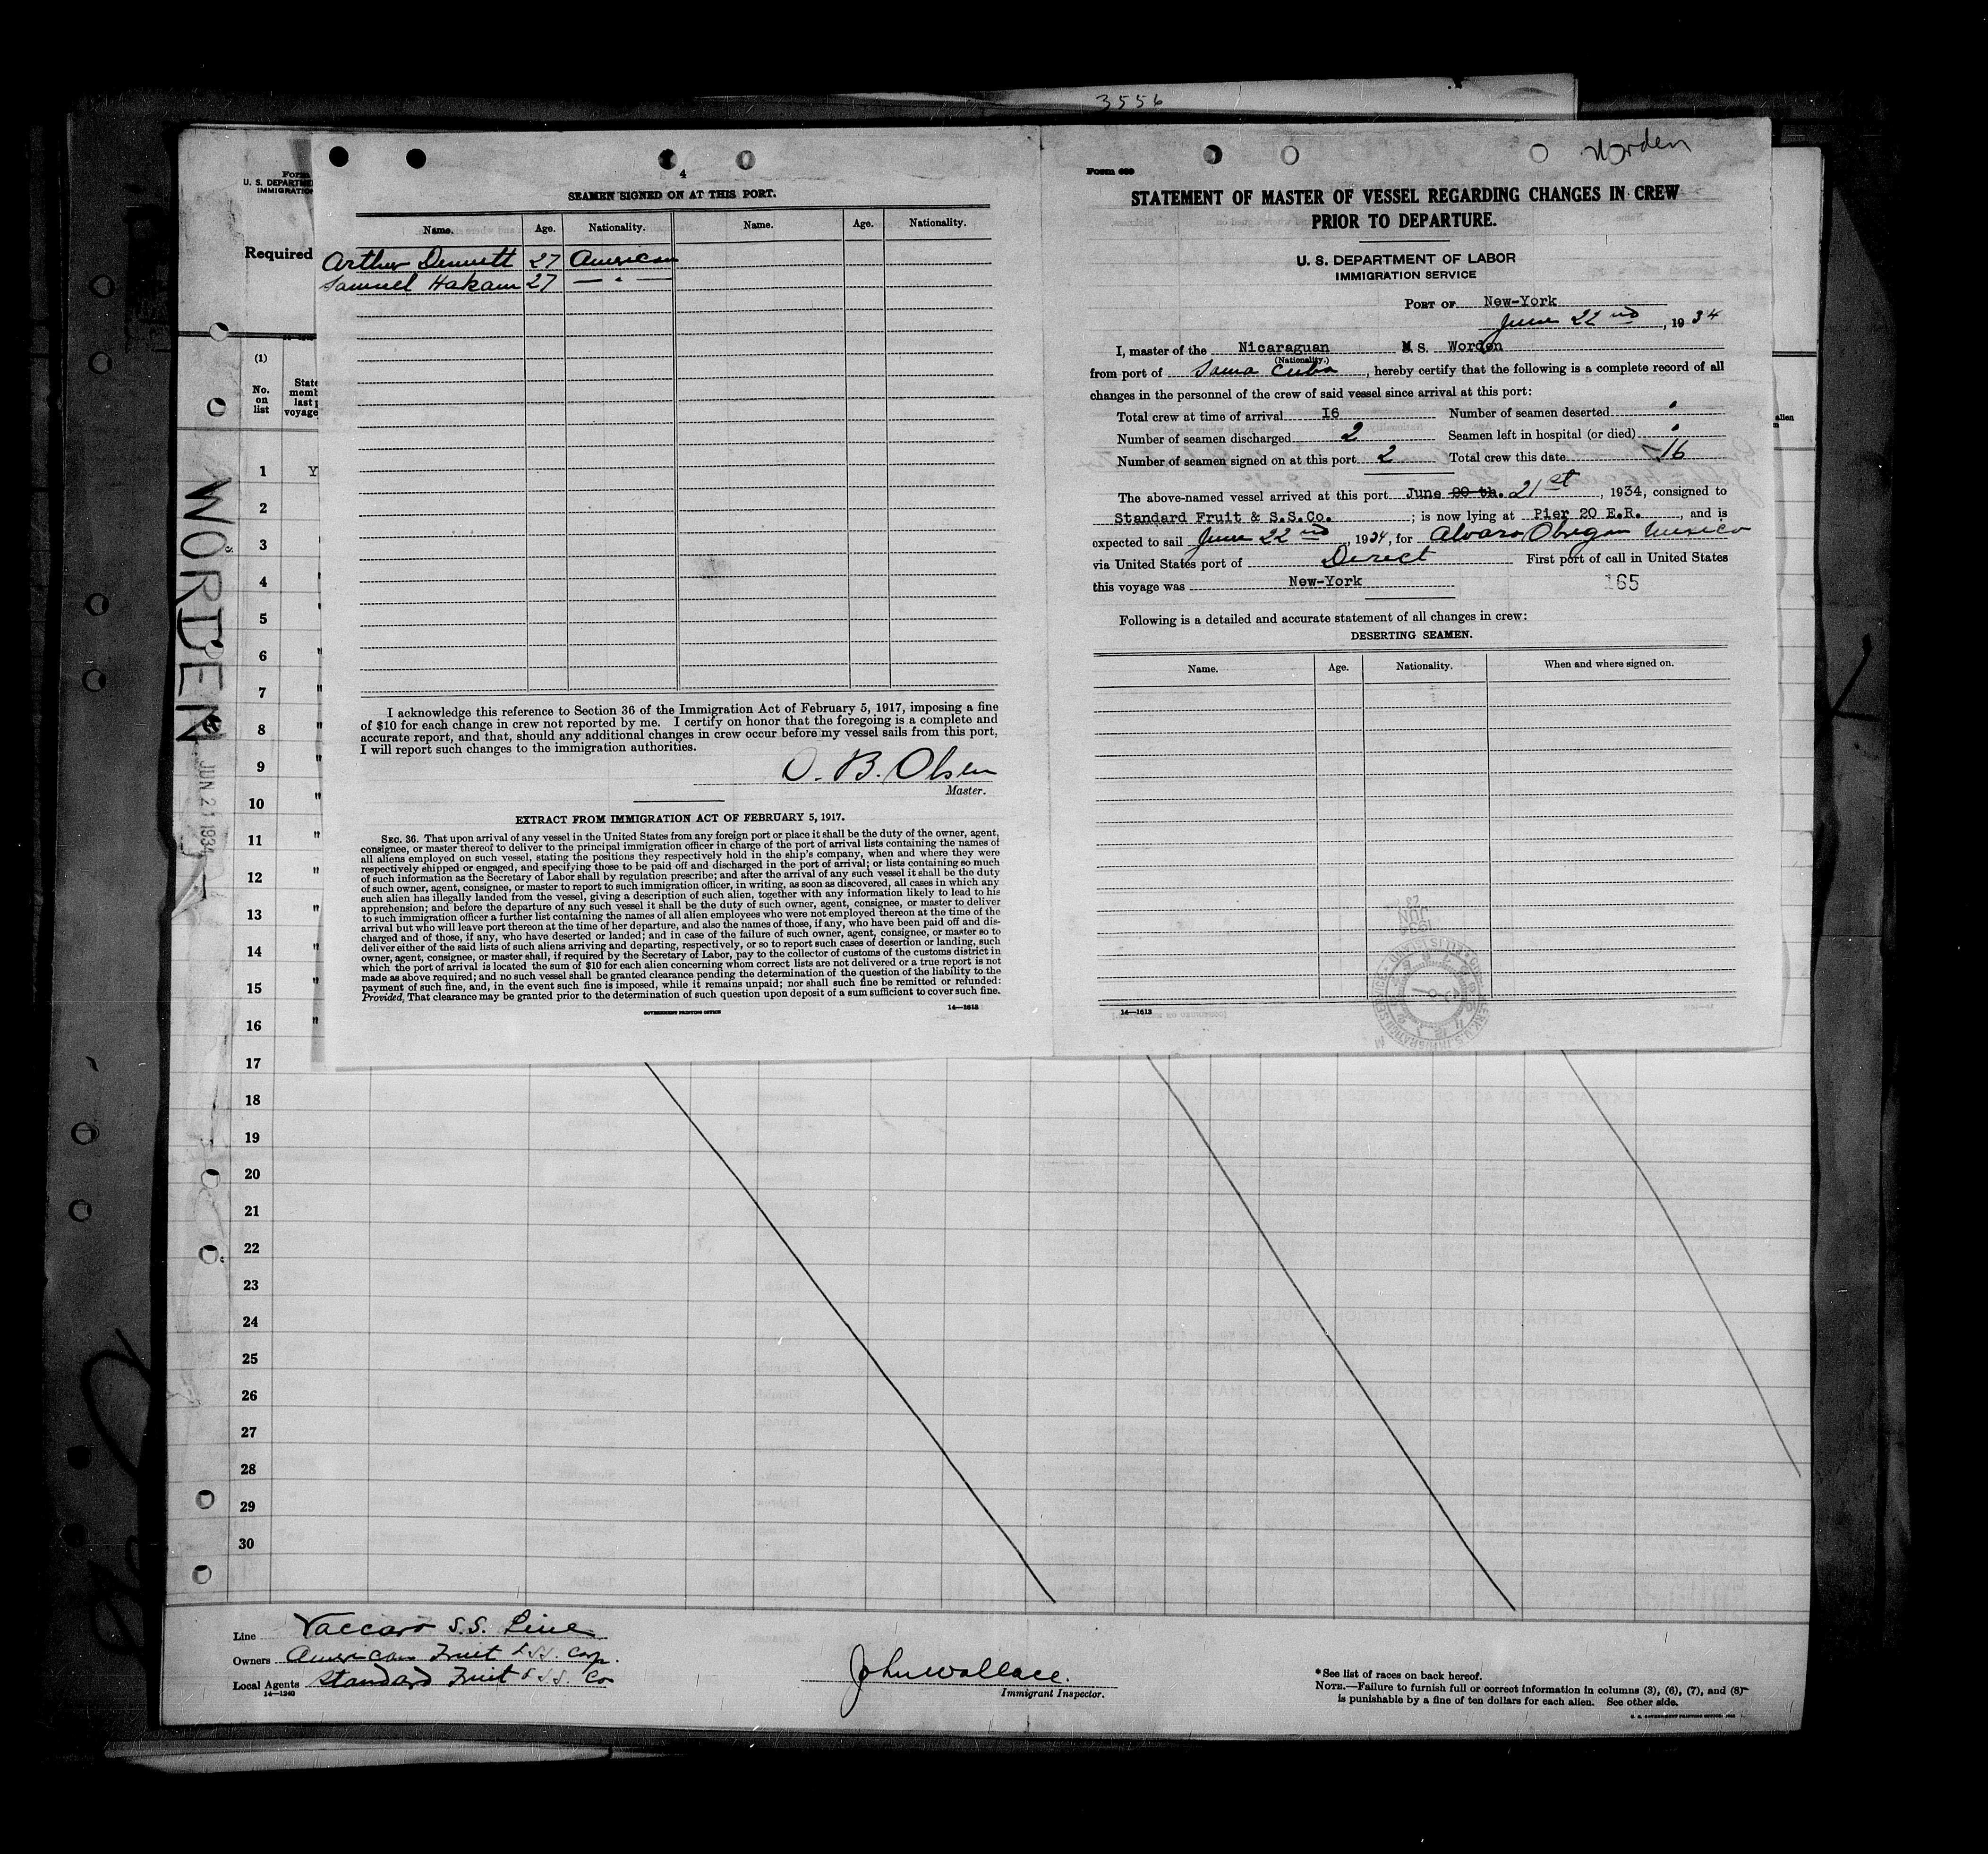 3556
Form
U. S. DEPARTME
IMMIGRATIO
Required
(1)
No.
on
list
State
memb
last p
voyage
1 Y
2
3
4
5
6 "
7 "
8 "
9 "
10 "
11 "
12 "
13 "
14 "
15 "
16 "
17
18
19
20
21
22
23
24
25
26
27
28
29
30
WORDEN
JUN 21 1934
4
SEAMEN SIGNED ON AT THIS PORT.
Name. Age. Nationality. Name. Age. Nationality.
Arthur Dennett 27 American
Samuel Hakam 27 — " —
I acknowledge this reference to Section 36 of the Immigration Act of February 5, 1917, imposing a fine
of $10 for each change in crew not reported by me. I certify on honor that the foregoing is a complete and
accurate report, and that, should any additional changes in crew occur before my vessel sails from this port,
I will report such changes to the immigration authorities.
O. B. Olsen
Master.
EXTRACT FROM IMMIGRATION ACT OF FEBRUARY 5, 1917.
SEC. 36. That upon arrival of any vessel in the United States from any foreign port or place it shall be the duty of the owner, agent,
consignee, or master thereof to deliver to the principal immigration officer in charge of the port of arrival lists containing the names of
all aliens employed on such vessel, stating the positions they respectively hold in the ship's company, when and where they were
respectively shipped or engaged, and specifying those to be paid off and discharged in the port of arrival; or lists containing so much
of such information as the Secretary of Labor shall by regulation prescribe; and after the arrival of any such vessel it shall be the duty
of such owner, agent, consignee, or master to report to such immigration officer, in writing, as soon as discovered, all cases in which any
such alien has illegally landed from the vessel, giving a description of such alien, together with any information likely to lead to his
apprehension; and before the departure of any such vessel it shall be the duty of such owner, agent, consignee, or master to deliver
to such immigration officer a further list containing the names of all alien employees who were not employed thereon at the time of the
arrival but who will leave port thereon at the time of her departure, and also the names of those, if any, who have been paid off and dis-
charged and of those, if any, who have deserted or landed; and in case of the failure of such owner, agent, consignee, or master so to
deliver either of the said lists of such aliens arriving and departing, respectively, or so to report such cases of desertion or landing, such
owner, agent, consignee, or master shall, if required by the Secretary of Labor, pay to the collector of customs of the customs district in
which the port of arrival is located the sum of $10 for each alien concerning whom correct lists are not delivered or a true report is not
made as above required; and no such vessel shall be granted clearance pending the determination of the question of the liability to the
payment of such fine, and, in the event such fine is imposed, while it remains unpaid; nor shall such fine be remitted or refunded:
Provided, That clearance may be granted prior to the determination of such question upon deposit of a sum sufficient to cover such fine.
GOVERNMENT PRINTING OFFICE 14—1613
Worden
Form 689
STATEMENT OF MASTER OF VESSEL REGARDING CHANGES IN CREW
PRIOR TO DEPARTURE.
U. S. DEPARTMENT OF LABOR
IMMIGRATION SERVICE
PORT OF New-York
June 22nd, 1934
I, master of the Nicaraguan M S. Worden
(Nationality.)
from port of Sama Cuba, hereby certify that the following is a complete record of all
changes in the personnel of the crew of said vessel since arrival at this port:
Total crew at time of arrival I6 Number of seamen deserted
Number of seamen discharged 2 Seamen left in hospital (or died)
Number of seamen signed on at this port 2 Total crew this date 16
The above-named vessel arrived at this port June 20 th. 21st, 1934, consigned to
Standard Fruit & S.S.Co.; is now lying at Pier 20 E.R., and is
expected to sail June 22nd, 1934, for Alvaro Obregon Mexico
via United States port of Direct First port of call in United States
this voyage was New-York
165
Following is a detailed and accurate statement of all changes in crew:
DESERTING SEAMEN.
Name. Age. Nationality. When and where signed on.
14—1613
1934
JUN
alien
Line Vaccaro S.S. Line
Owners American Fruit & S.S. Corp.
Local Agents Standard Fruit & S.S. Co
14—1240
John Wallace.
Immigrant Inspector.
*See list of races on back hereof.
NOTE.—Failure to furnish full or correct information in columns (3), (6), (7), and (8)
is punishable by a fine of ten dollars for each alien. See other side.